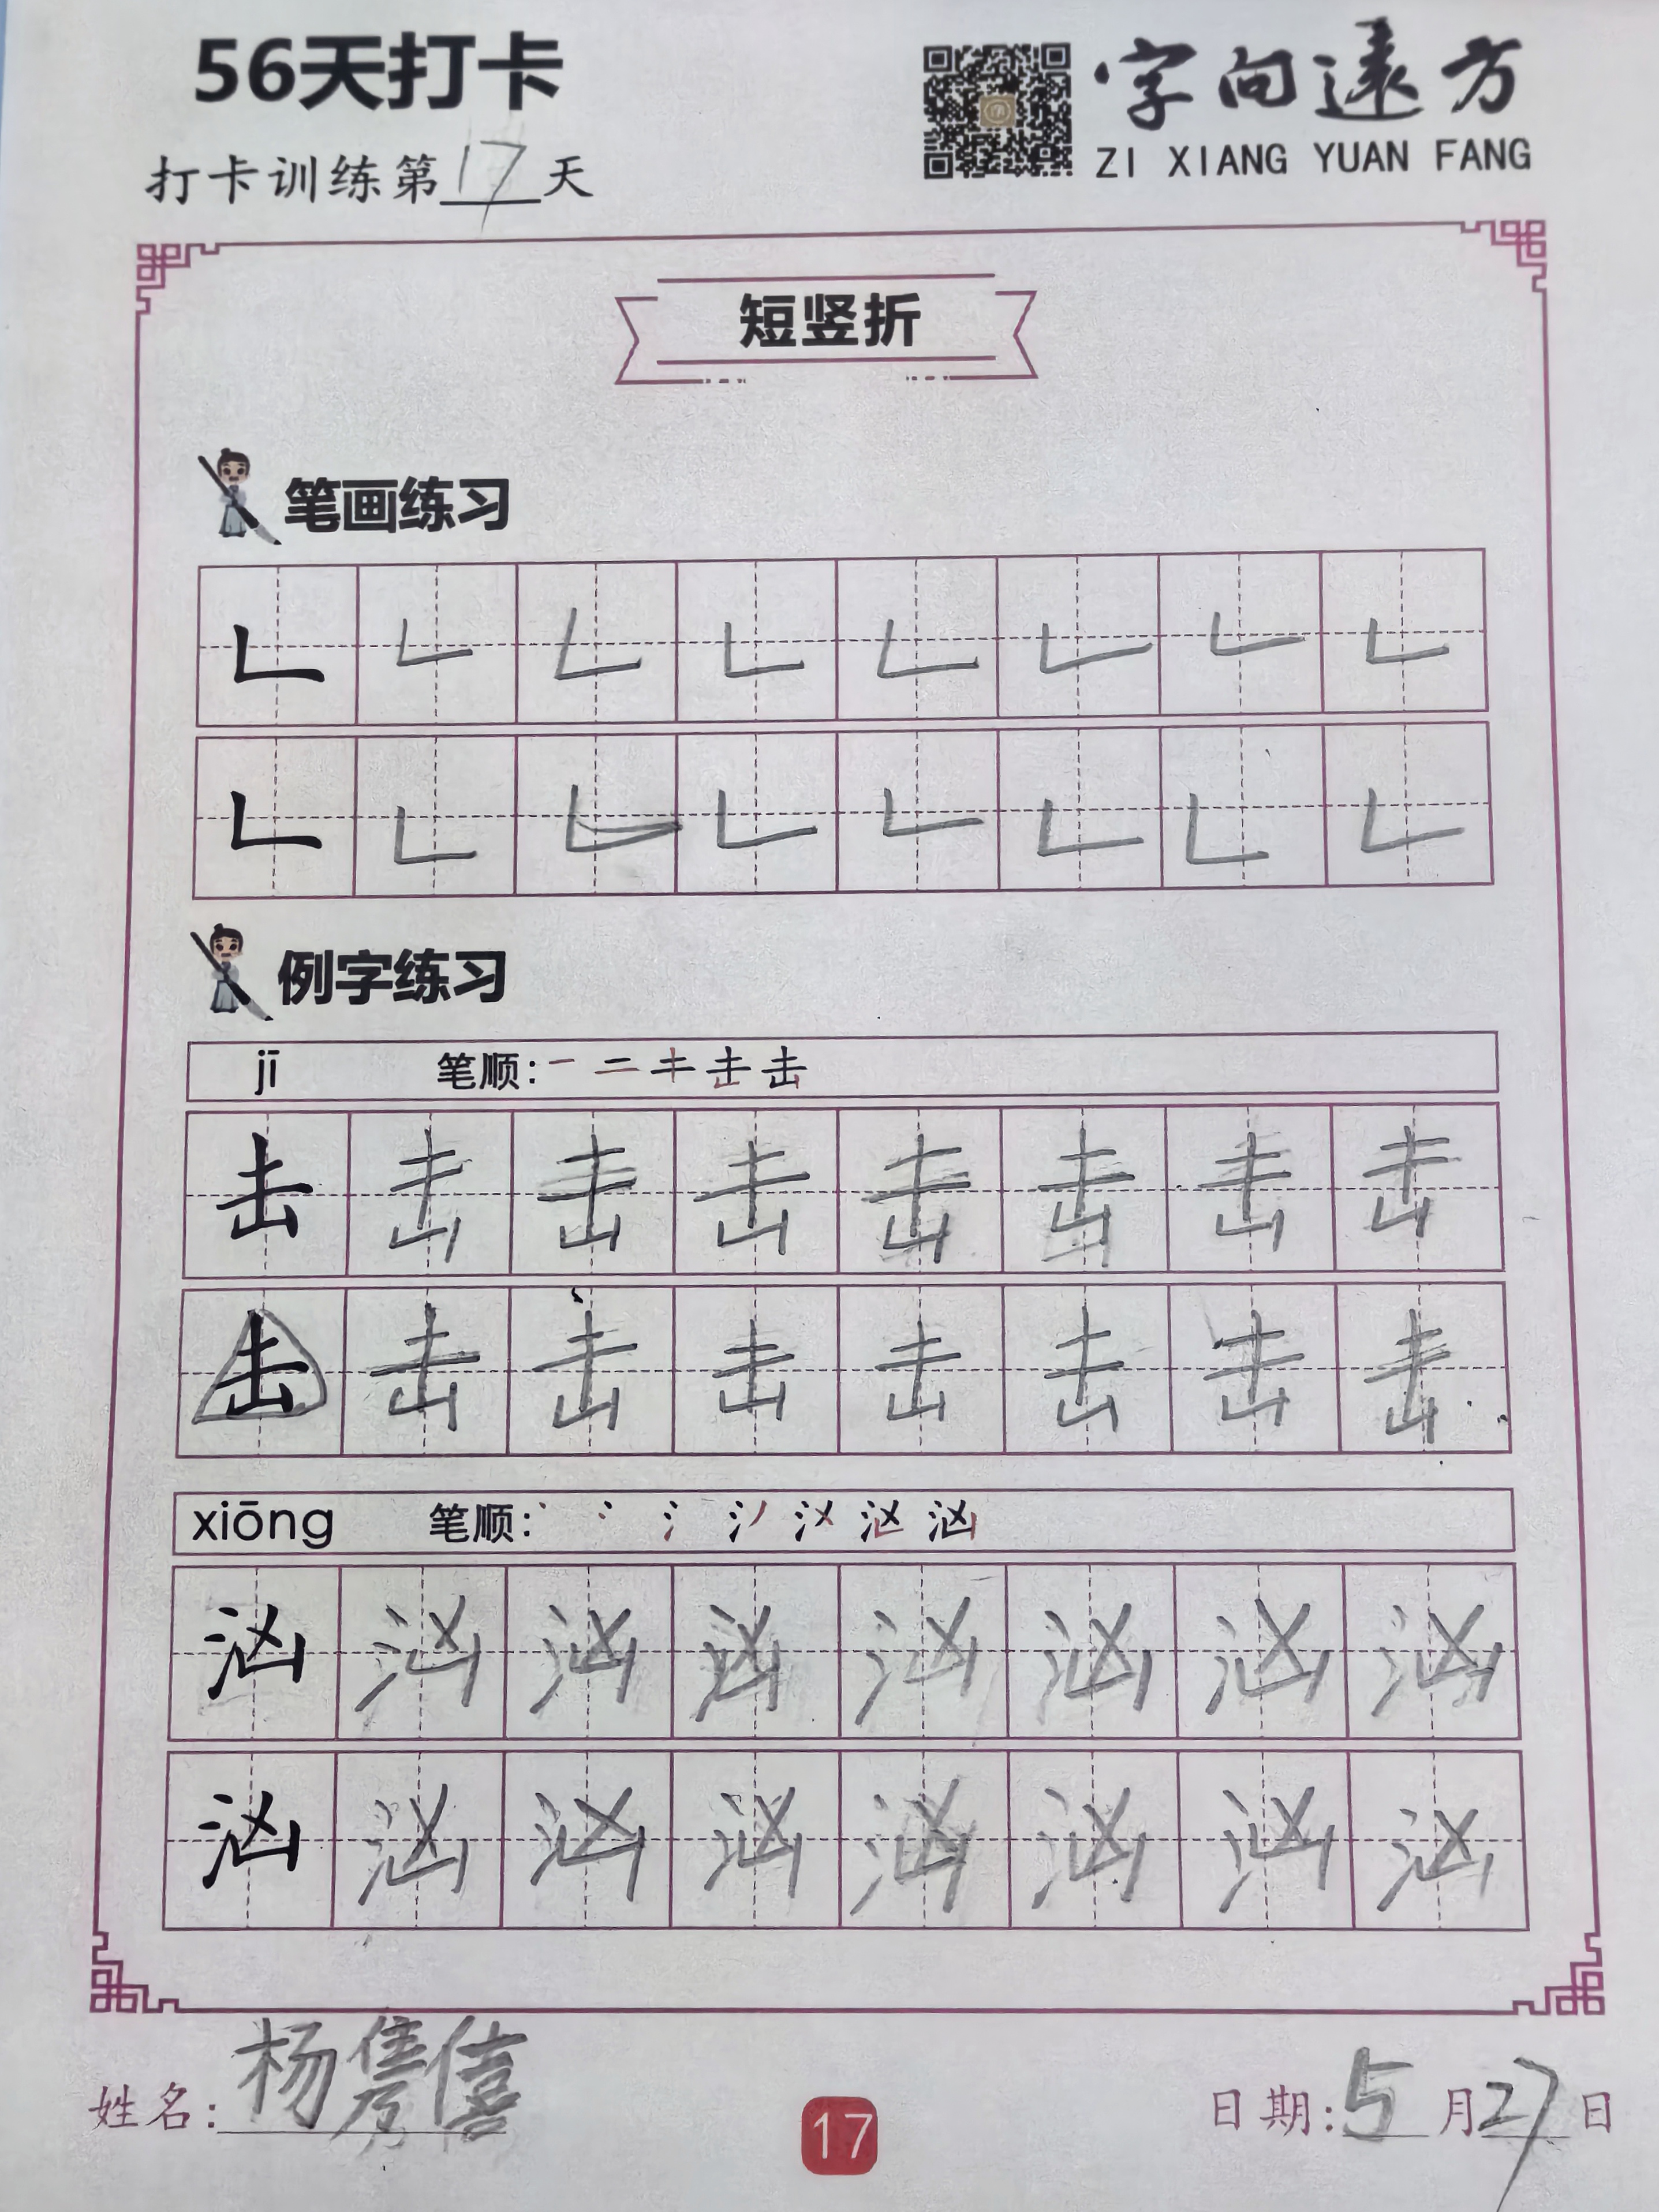 56天打卡
字向遠方
打卡训练第17天
ZI XIANG YUAN FANG
短竖折
笔画练习
例字练习
jī 笔顺:
击 击 击 击 击 击 击 击
击 击 击 击 击 击 击 击
xiōng 笔顺:
汹 汹 汹 汹 汹 汹 汹 汹
汹 汹 汹 汹 汹 汹 汹 汹
姓名:杨 僖
17
日期:5月27日